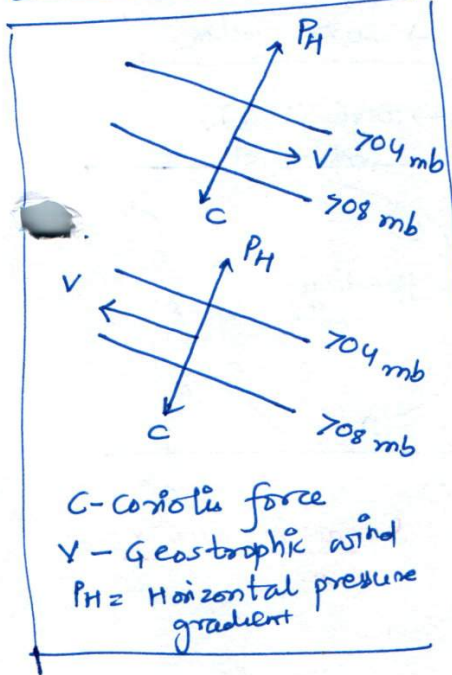 PH
704 mb
V
708 mb
C
PH
V
704 mb
708 mb
C
C-Coriolis force
V - Geostrophic wind
PH = Horizontal pressure
gradient